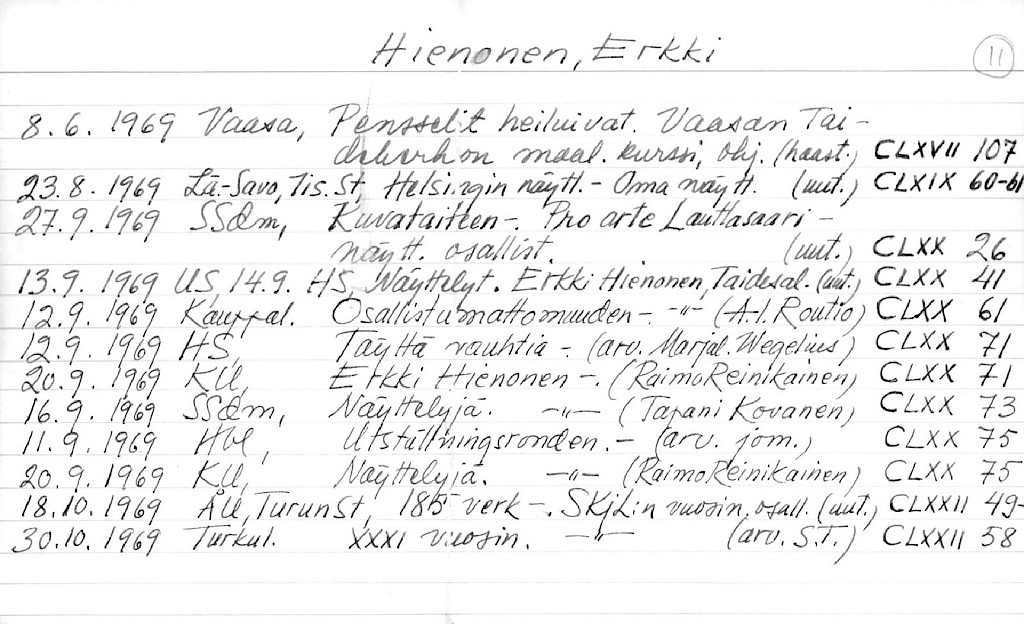 Hienonen, Erkki 11
8.6. 1969 Vaasa, Pensselit heiluivat. Vaasan Tai-
dekerhon maal. kurssi, ohj. (haast.) CLXVII 107
23.8. 1969 Lä.-Savo, Tis. St, Helsingin näytt. - Oma näytt. (uut.) CLXIX 60-61
27.9. 1969 SSdm, Kuvataiteen -. Pro arte Lauttasaari -
näytt. osallist. (uut.) CLXX 26
13.9. 1969 US, 14.9. HS, Näyttelyt. Erkki Hienonen, Taidesal. (uut.) CLXX 41
12.9. 1969 Kauppal. Osallistumattomuuden -. -"- (A-I. Routio) CLXX 61
12.9. 1969 HS, Täyttä vauhtia -. (arv. Marjal. Wegelius) CLXX 71
20.9. 1969 KU, Erkki Hienonen -. (Raimo Reinikainen) CLXX 71
16.9. 1969 SSdm, Näyttelyjä. -"- (Tapani Kovanen) CLXX 73
11.9. 1969 Hbl, Utställningsronden. - (arv. jom.) CLXX 75
20.9. 1969 KU, Näyttelyjä. -"- (Raimo Reinikainen) CLXX 75
18.10. 1969 ÅU, Turun St, 185 verk -. SKjL:n vuosin. osall. (uut.) CLXXII 49-
30.10. 1969 Turkul. XXXI vuosin. -"- (arv. S.T.) CLXXII 58